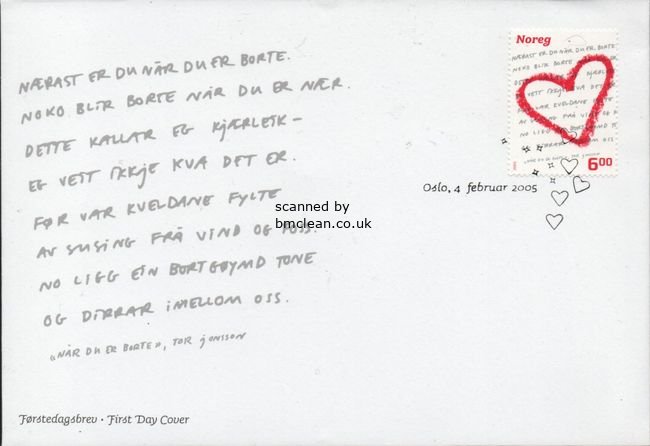 NÆRAST ER DU NÅR DU ER BORTE.
NOKO BLIR BORTE NÅR DU ER NÆR.
DETTE KALLAR EG KJÆRLEIK –
EG VEIT IKKJE KVA DET ER.
FØR VAR KVELDANE FYLTE
AV SUSING FRÅ VIND OG FOSS.
NO LIGG EIN BORTGØYMD TONE
OG DIRRAR IMELLOM OSS.
«NÅR DU ER BORTE», TOR JONSSON
Førstedagsbrev · First Day Cover
Noreg
NÆRAST ER DU NÅR DU ER BORTE.
NOKO BLIR BORTE
KJÆRLEIK
VEIT IKKJE KVA DET
VAR KVELDANE
AV SUSING FRÅ VIND
NO LIGG
6.00
Oslo, 4 februar 2005
scanned by
bmclean.co.uk